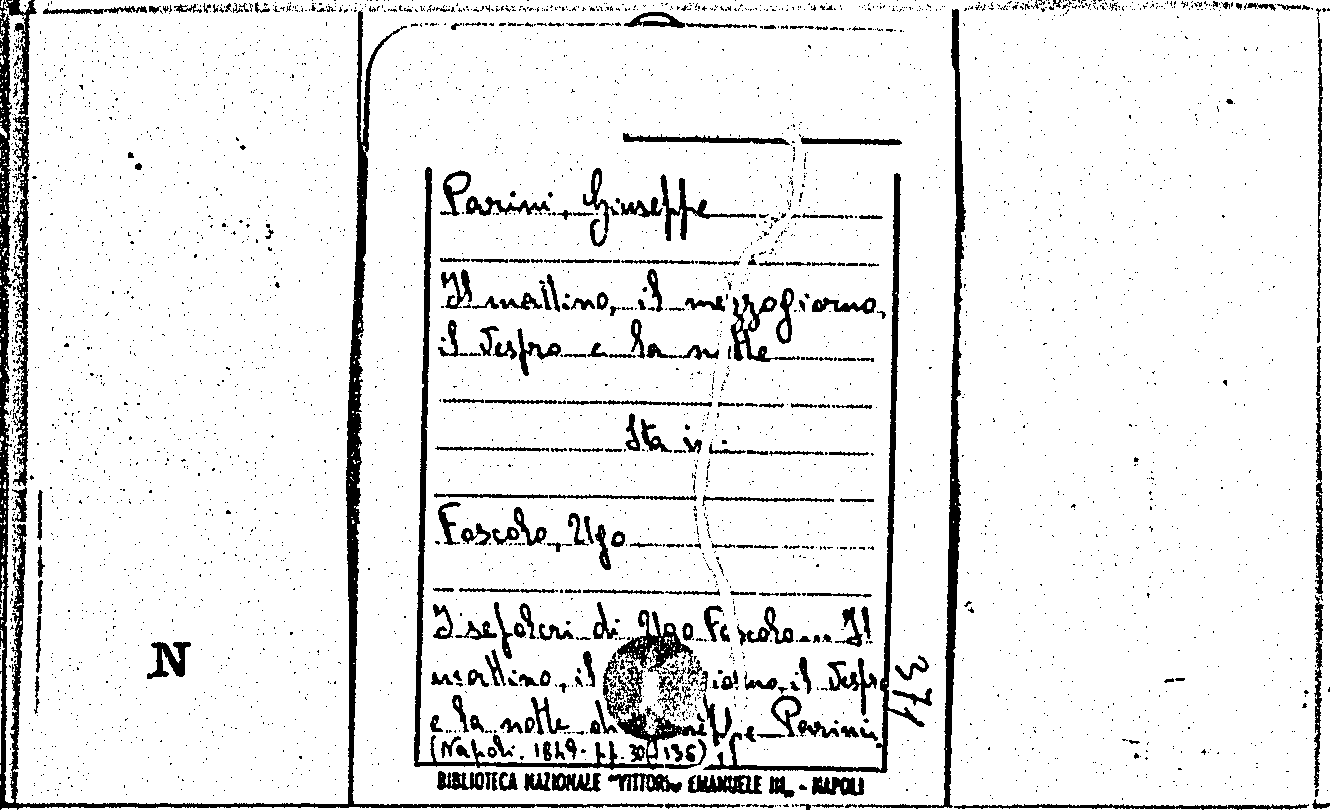 Parini, Giuseppe
Il mattino, il mezzogiorno,
il Vespro e la notte
Sta in:
Foscolo, Ugo
I sepolcri di Ugo Foscolo... Il
mattino, il iorno, il Vespro
e la notte di Giuseppe Parini.
(Napoli. 1849. pp. 136)
BIBLIOTECA NAZIONALE "VITTORIO EMANUELE III" - NAPOLI
N
371